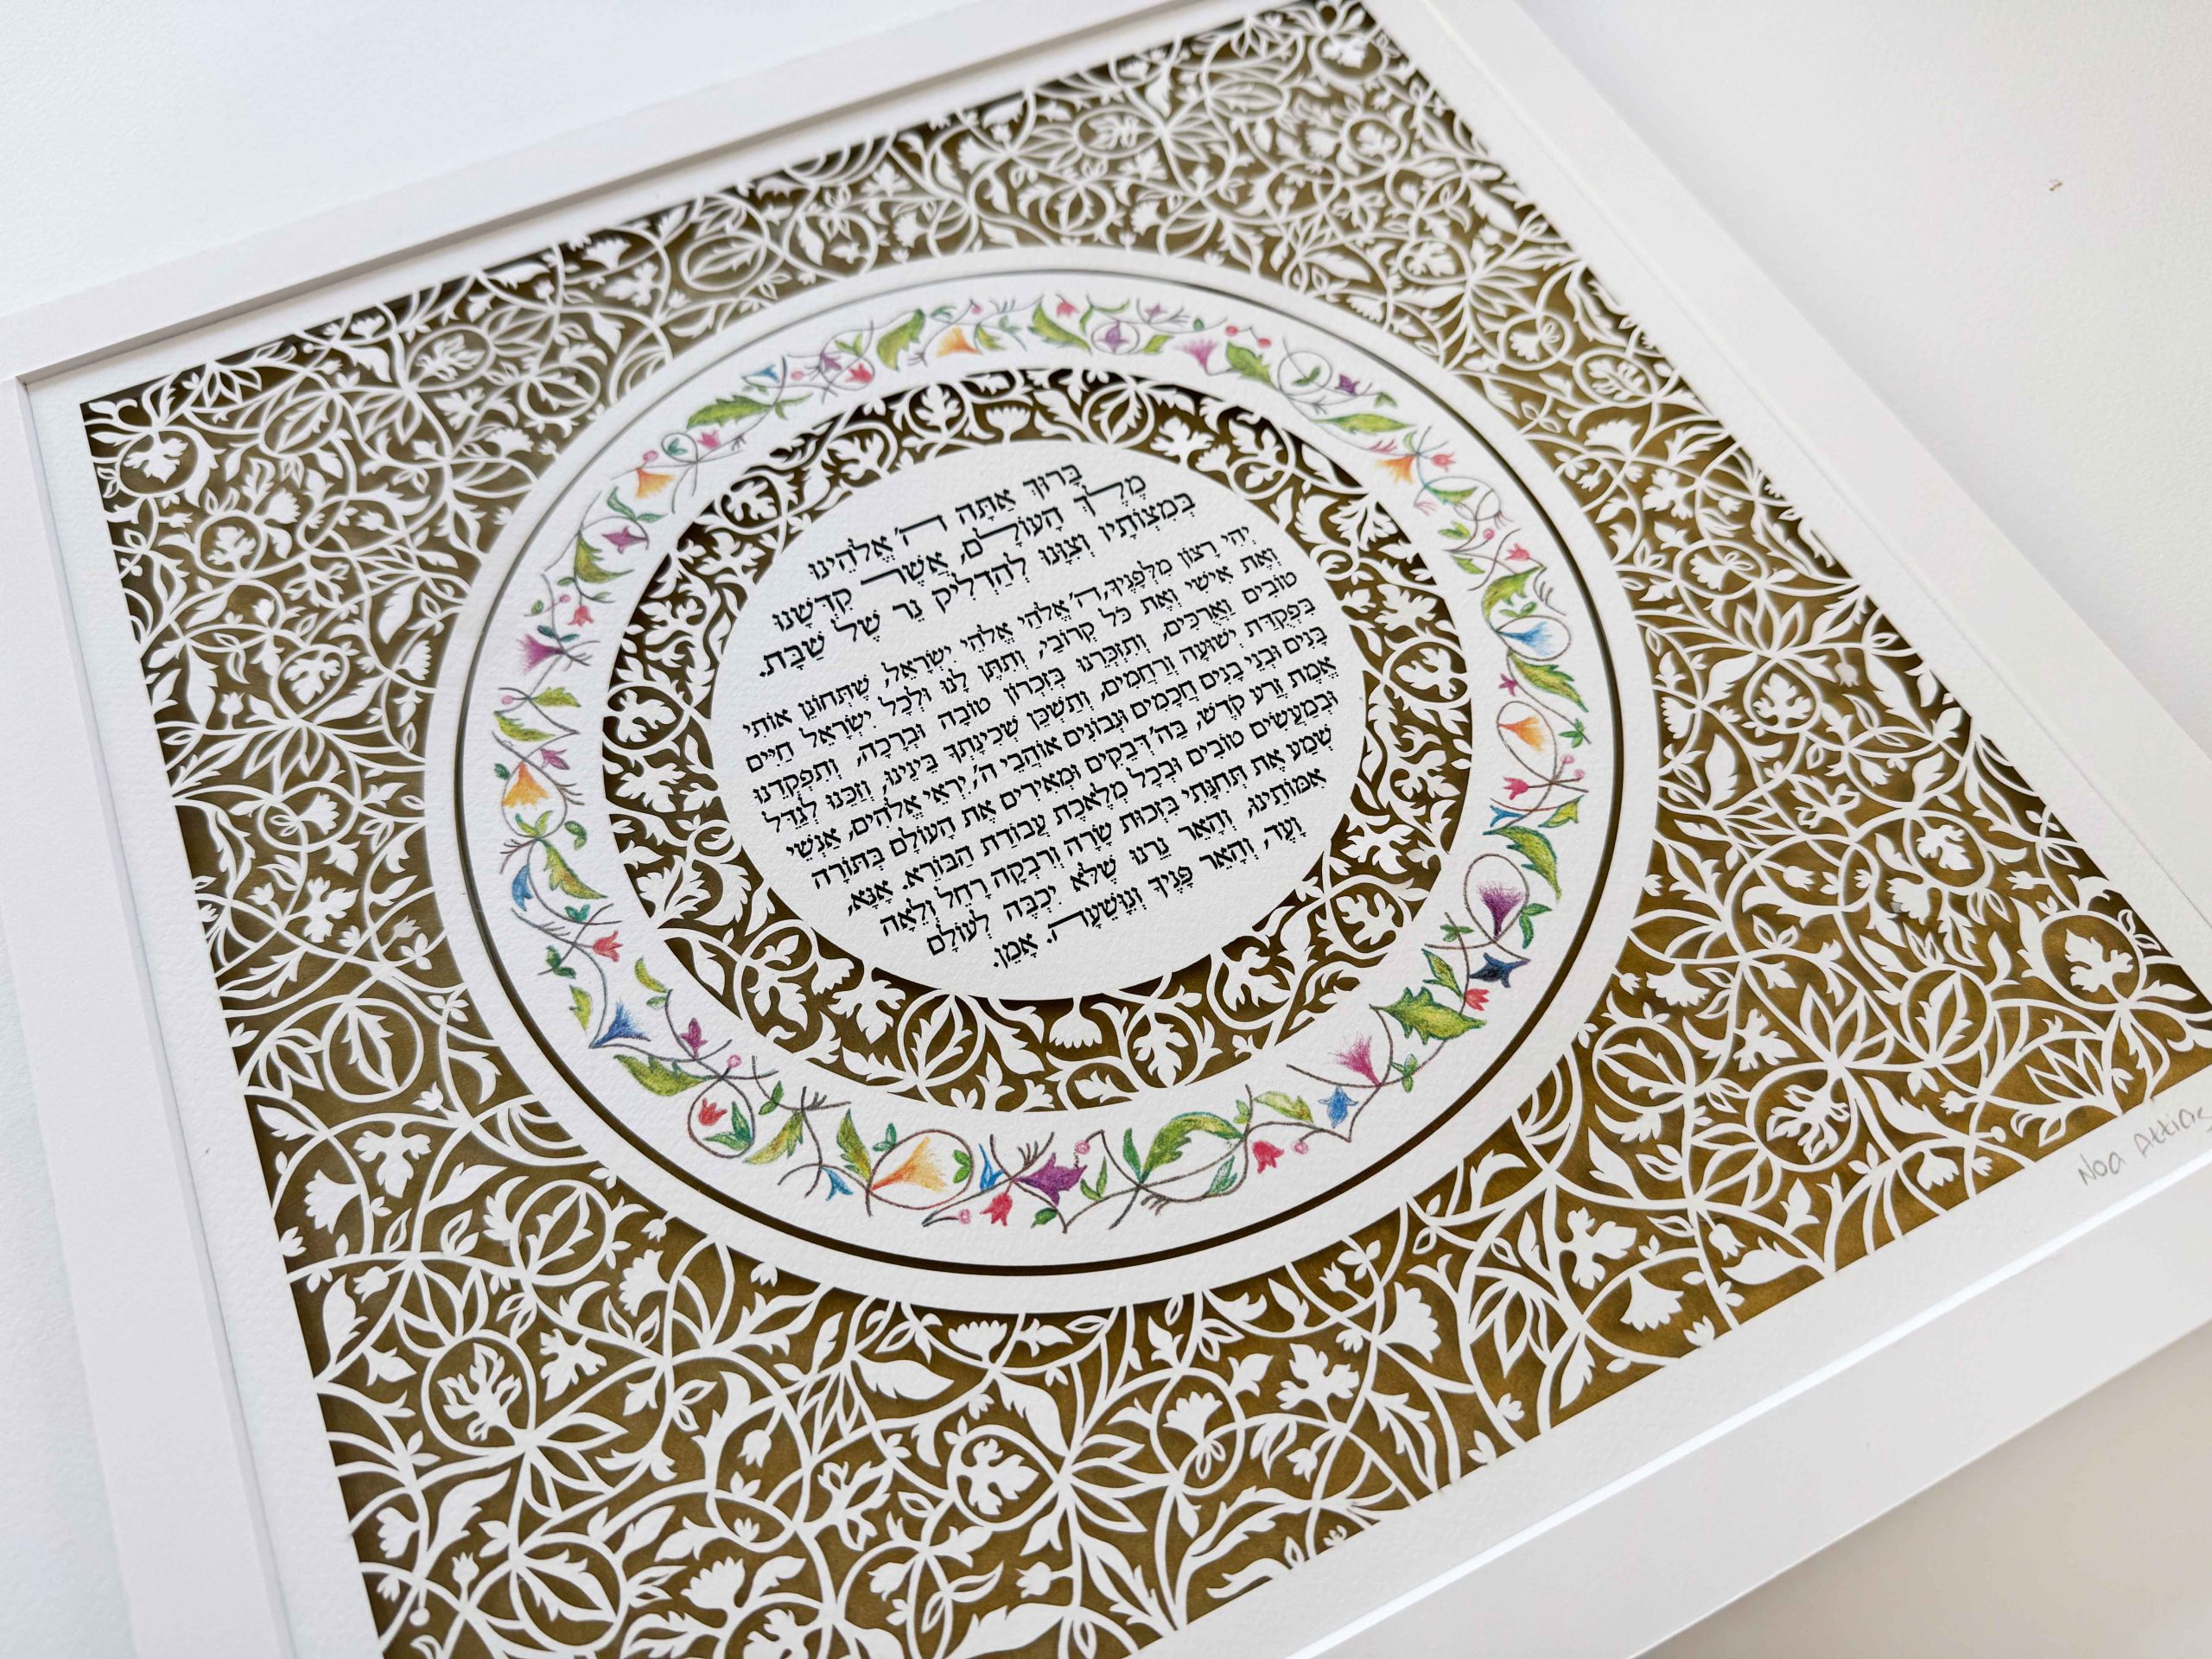 בָּרוּךְ אַתָּה ה' אֱלֹהֵינוּ
מֶלֶךְ הָעוֹלָם, אֲשֶׁר קִדְּשָׁנוּ
בְּמִצְוֹתָיו וְצִוָּנוּ לְהַדְלִיק נֵר שֶׁל שַׁבָּת.
יְהִי רָצוֹן מִלְּפָנֶיךָ, ה' אֱלֹהַי אֱלֹהֵי יִשְׂרָאֵל, שֶׁתְּחוֹנֵן אוֹתִי
וְאֶת אִישִׁי וְאֶת כֹּל קְרוֹבַי, וְתִתֵּן לָנוּ וּלְכָל יִשְׂרָאֵל חַיִּים
טוֹבִים וַאֲרֻכִּים, וְתִזְכְּרֵנוּ בְּזִכְרוֹן טוֹבָה וּבְרָכָה, וְתִפְקְדֵנוּ
בִּפְקֻדַּת יְשׁוּעָה וְרַחֲמִים, וְתַשְׁכֵּן שְׁכִינָתְךָ בֵּינֵינוּ, וְזַכֵּנוּ לְגַדֵּל
בָּנִים וּבְנֵי בָנִים חֲכָמִים וּנְבוֹנִים אוֹהֲבֵי ה', יִרְאֵי אֱלֹהִים, אַנְשֵׁי
אֱמֶת זֶרַע קֹדֶשׁ, בַּה' דְּבֵקִים וּמְאִירִים אֶת הָעוֹלָם בְּתּוֹרָה
וּבְמַעֲשִׂים טוֹבִים וּבְכָל מְלֶאכֶת עֲבוֹדַת הַבּוֹרֵא. אָנָּא,
שְׁמַע אֶת תְּחִנָּתִי בִּזְכוּת שָׂרָה וְרִבְקָה רָחֵל וְלֵאָה
אִמּוֹתֵינוּ, וְהָאֵר נֵרֵנוּ שֶׁלֹּא יִכְבֶּה לְעוֹלָם
וָעֶד, וְהָאֵר פָּנֶיךָ וְנִוָּשֵׁעָה. אָמֵן.
Noa Attias